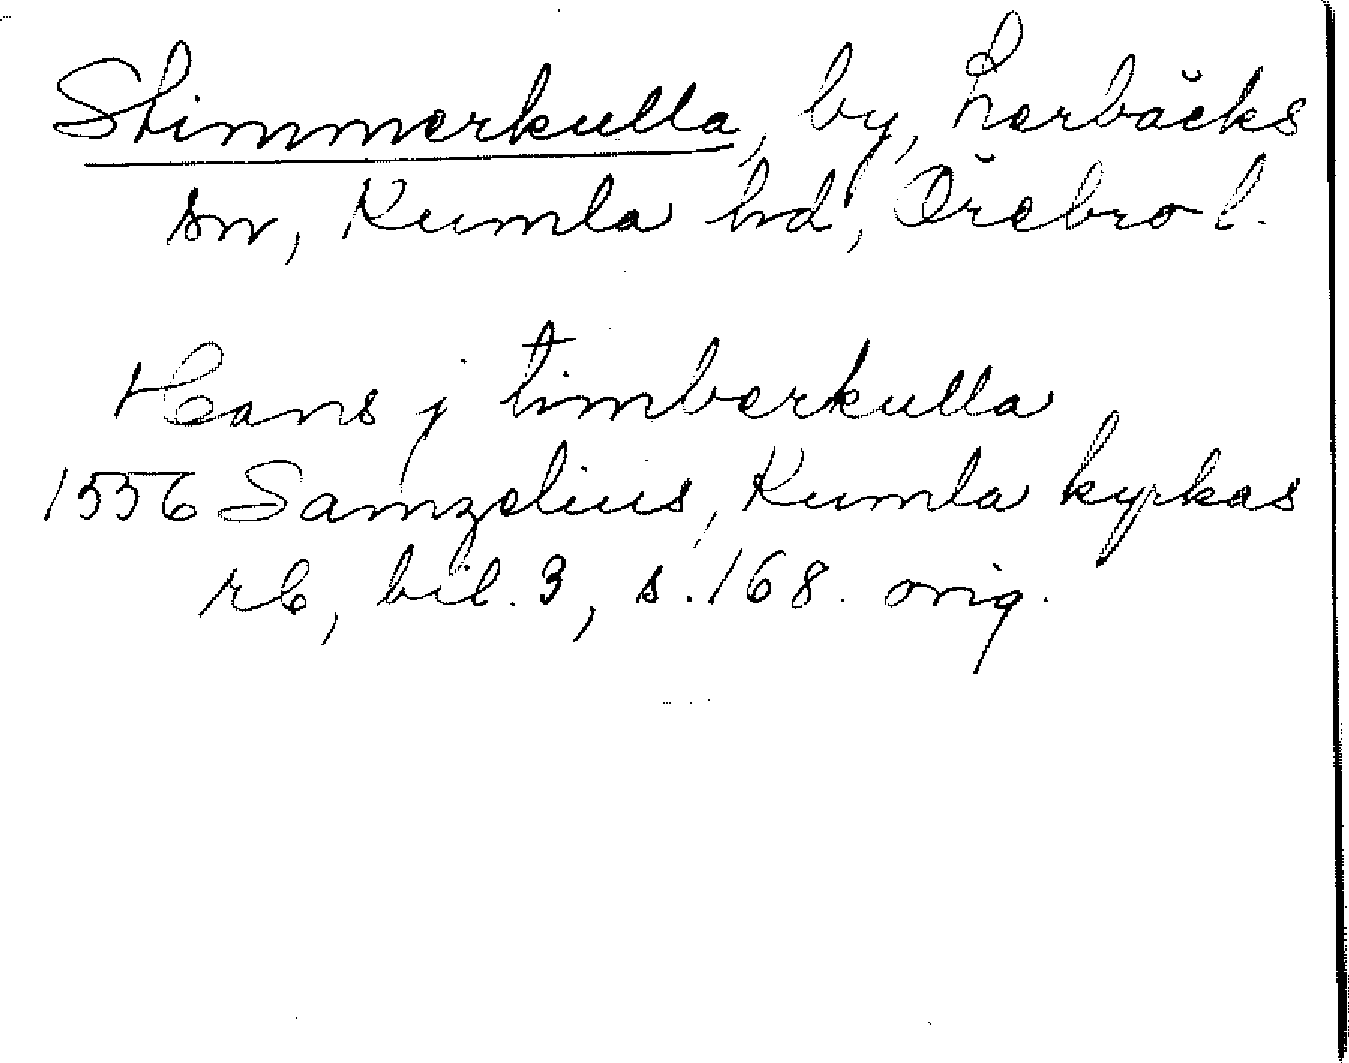 Stimmerkulla, by, Lerbäcks
sn, Kumla hd, Örebro l.
Hans j timberkulla
1556 Samzelius, Kumla kyrkas
rb, bil. 3, s. 168. orig.